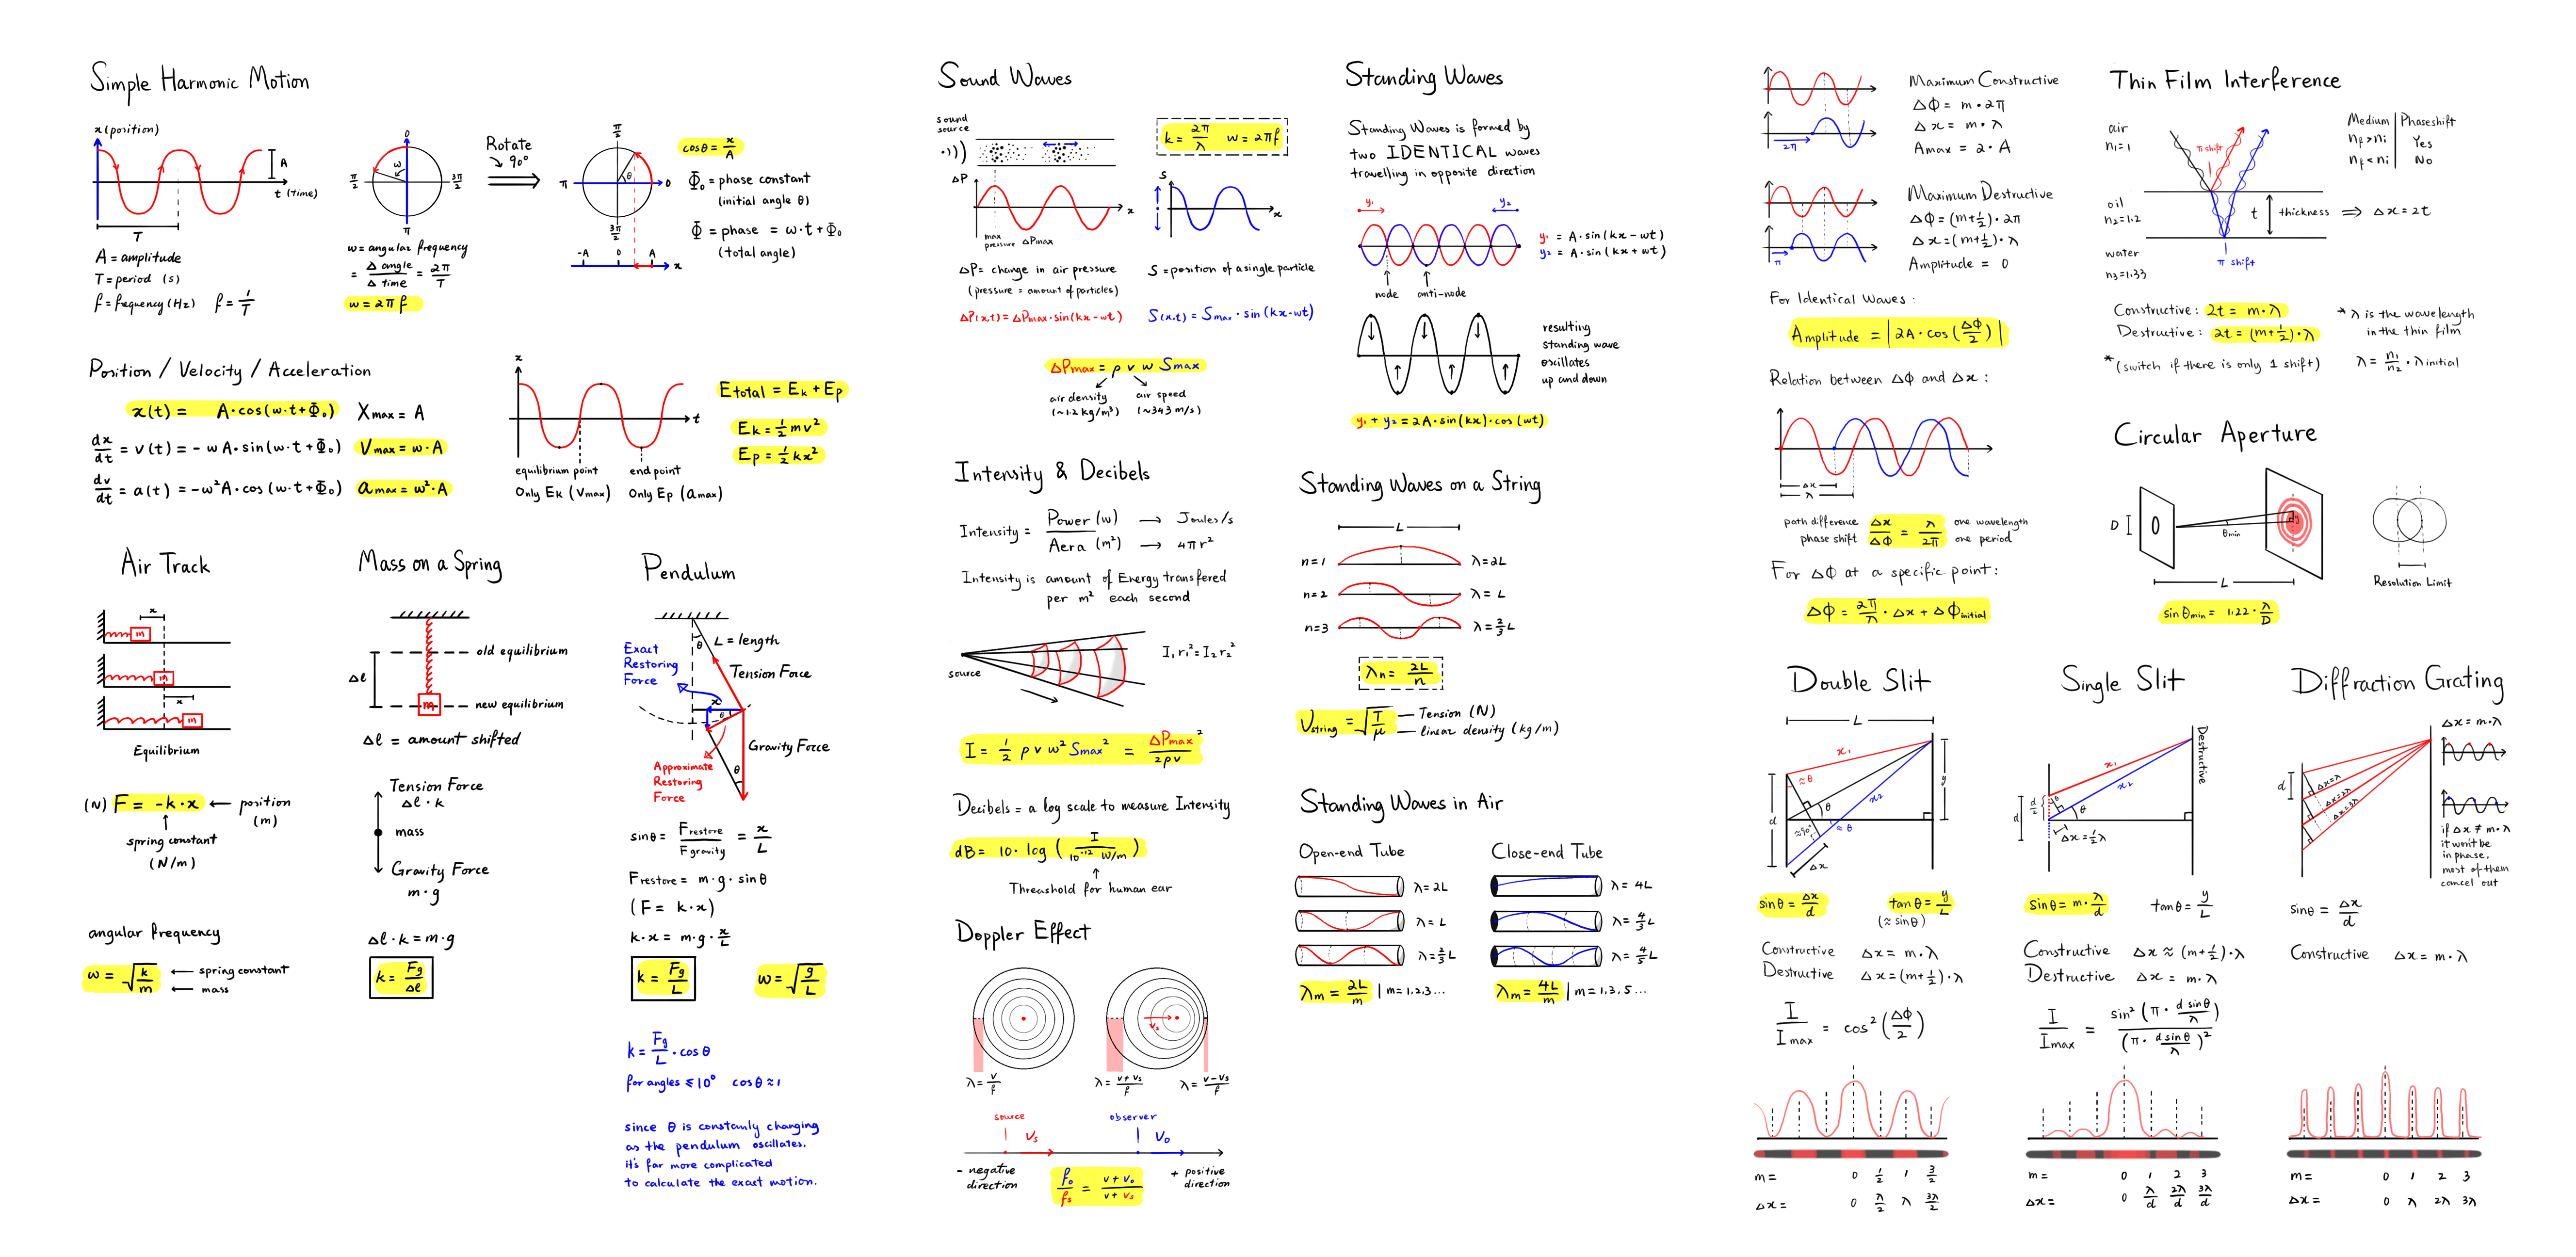 Simple Harmonic Motion
x (position)
A
t (time)
T
A = amplitude
T = period (s)
f = frequency (Hz) f = 1/T
0
π/2
ω
3π/2
π
ω = angular frequency
= Δ angle / Δ time = 2π/T
ω = 2πf
Rotate
90°
π/2
π
θ
0
3π/2
-A 0 A
x
cosθ = x/A
Φ₀ = phase constant
(initial angle θ)
Φ = phase = ω·t + Φ₀
(total angle)
Position / Velocity / Acceleration
x(t) = A·cos(ω·t + Φ₀) Xmax = A
dx/dt = v(t) = -ωA·sin(ω·t + Φ₀) Vmax = ω·A
dv/dt = a(t) = -ω²A·cos(ω·t + Φ₀) amax = ω²·A
x
t
equilibrium point end point
Only Ek (Vmax) Only Ep (amax)
Etotal = Ek + Ep
Ek = ½mv²
Ep = ½kx²
Air Track
x
m
m
x
m
Equilibrium
(N) F = -k·x ← position
(m)
spring constant
(N/m)
angular frequency
ω = √(k/m) ← spring constant
← mass
Mass on a Spring
old equilibrium
Δl
m
new equilibrium
Δl = amount shifted
Tension Force
Δl·k
mass
Gravity Force
m·g
Δl·k = m·g
k = Fg/Δl
Pendulum
θ
L = length
Exact
Restoring
Force
Tension Force
x
θ
Gravity Force
Approximate
Restoring
Force
θ
sinθ = Frestore/Fgravity = x/L
Frestore = m·g·sinθ
(F = k·x)
k·x = m·g·x/L
k = Fg/L ω = √(g/L)
k = Fg/L·cosθ
for angles ≤ 10° cosθ ≈ 1
since θ is constanly changing
as the pendulum oscillates.
it's far more complicated
to calculate the exact motion.
Sound Waves
sound
source
k = 2π/λ ω = 2πf
ΔP
x
max
pressure ΔPmax
S
x
ΔP = change in air pressure
(pressure = amount of particles)
S = position of a single particle
ΔP(x,t) = ΔPmax·sin(kx-ωt)
S(x,t) = Smax·sin(kx-ωt)
ΔPmax = ρ v ω Smax
air density air speed
(~1.2 kg/m³) (~343 m/s)
Intensity & Decibels
Intensity = Power (W) / Aera (m²)
→ Joules/s
→ 4πr²
Intensity is amount of Energy transfered
per m² each second
source
I₁r₁² = I₂r₂²
I = ½ ρ v ω² Smax² = ΔPmax²/2ρv
Decibels = a log scale to measure Intensity
dB = 10·log( I / 10⁻¹² W/m )
Threashold for human ear
Doppler Effect
Vs
λ = v/f λ = v+vs/f λ = v-vs/f
source observer
Vs Vo
- negative
direction
+ positive
direction
fo/fs = v+vo/v+vs
Standing Waves
Standing Waves is formed by
two IDENTICAL waves
travelling in opposite direction
y₁ y₂
y₁ = A·sin(kx-ωt)
y₂ = A·sin(kx+ωt)
node anti-node
resulting
standing wave
oscillates
up and down
y₁ + y₂ = 2A·sin(kx)·cos(ωt)
Standing Waves on a String
L
n=1 λ=2L
n=2 λ=L
n=3 λ=⅔L
λn = 2L/n
Vstring = √(T/μ) — Tension (N)
— linear density (kg/m)
Standing Waves in Air
Open-end Tube Close-end Tube
λ=2L λ=4L
λ=L λ=4/3L
λ=⅔L λ=4/5L
λm = 2L/m | m=1,2,3... λm = 4L/m | m=1,3,5...
2π
Maximum Constructive
ΔΦ = m·2π
Δx = m·λ
Amax = 2·A
π
Maximum Destructive
ΔΦ = (m+½)·2π
Δx = (m+½)·λ
Amplitude = 0
For Identical Waves:
Amplitude = |2A·cos(ΔΦ/2)|
Relation between ΔΦ and Δx:
Δx
λ
path difference Δx = λ one wavelength
phase shift ΔΦ 2π one period
For ΔΦ at a specific point:
ΔΦ = 2π/λ·Δx + ΔΦinitial
Thin Film Interference
air
n₁=1
oil
n₂=1.2
water
n₃=1.33
π shift
t thickness ⇒ Δx=2t
π shift
Medium | Phase shift
nf>ni Yes
nf<ni No
Constructive: 2t = m·λ
Destructive: 2t = (m+½)·λ
*(switch if there is only 1 shift)
* λ is the wavelength
in the thin film
λ = n₁/n₂·λinitial
Circular Aperture
D
θmin
L
Resolution Limit
sinθmin = 1.22·λ/D
Double Slit
L
x₁
≈θ
θ
x₂
y
d
≈90°
≈θ
Δx
sinθ = Δx/d tanθ = y/L
(≈sinθ)
Constructive Δx = m·λ
Destructive Δx = (m+½)·λ
I/Imax = cos²(ΔΦ/2)
m= 0 ½ 1 3/2
Δx= 0 λ/2 λ 3λ/2
Single Slit
Destructive
x₁
x₂
d/2
d
θ
θ
Δx=½λ
sinθ = m·λ/d tanθ = y/L
Constructive Δx ≈ (m+½)·λ
Destructive Δx = m·λ
I/Imax = sin²(π·d sinθ/λ) / (π·d sinθ/λ)²
m= 0 1 2 3
Δx= 0 λ/d 2λ/d 3λ/d
Diffraction Grating
Δx=m·λ
d
Δx=λ
Δx=2λ
Δx=3λ
if Δx ≠ m·λ
it won't be
in phase,
most of them
cancel out
sinθ = Δx/d
Constructive Δx = m·λ
m= 0 1 2 3
Δx= 0 λ 2λ 3λ